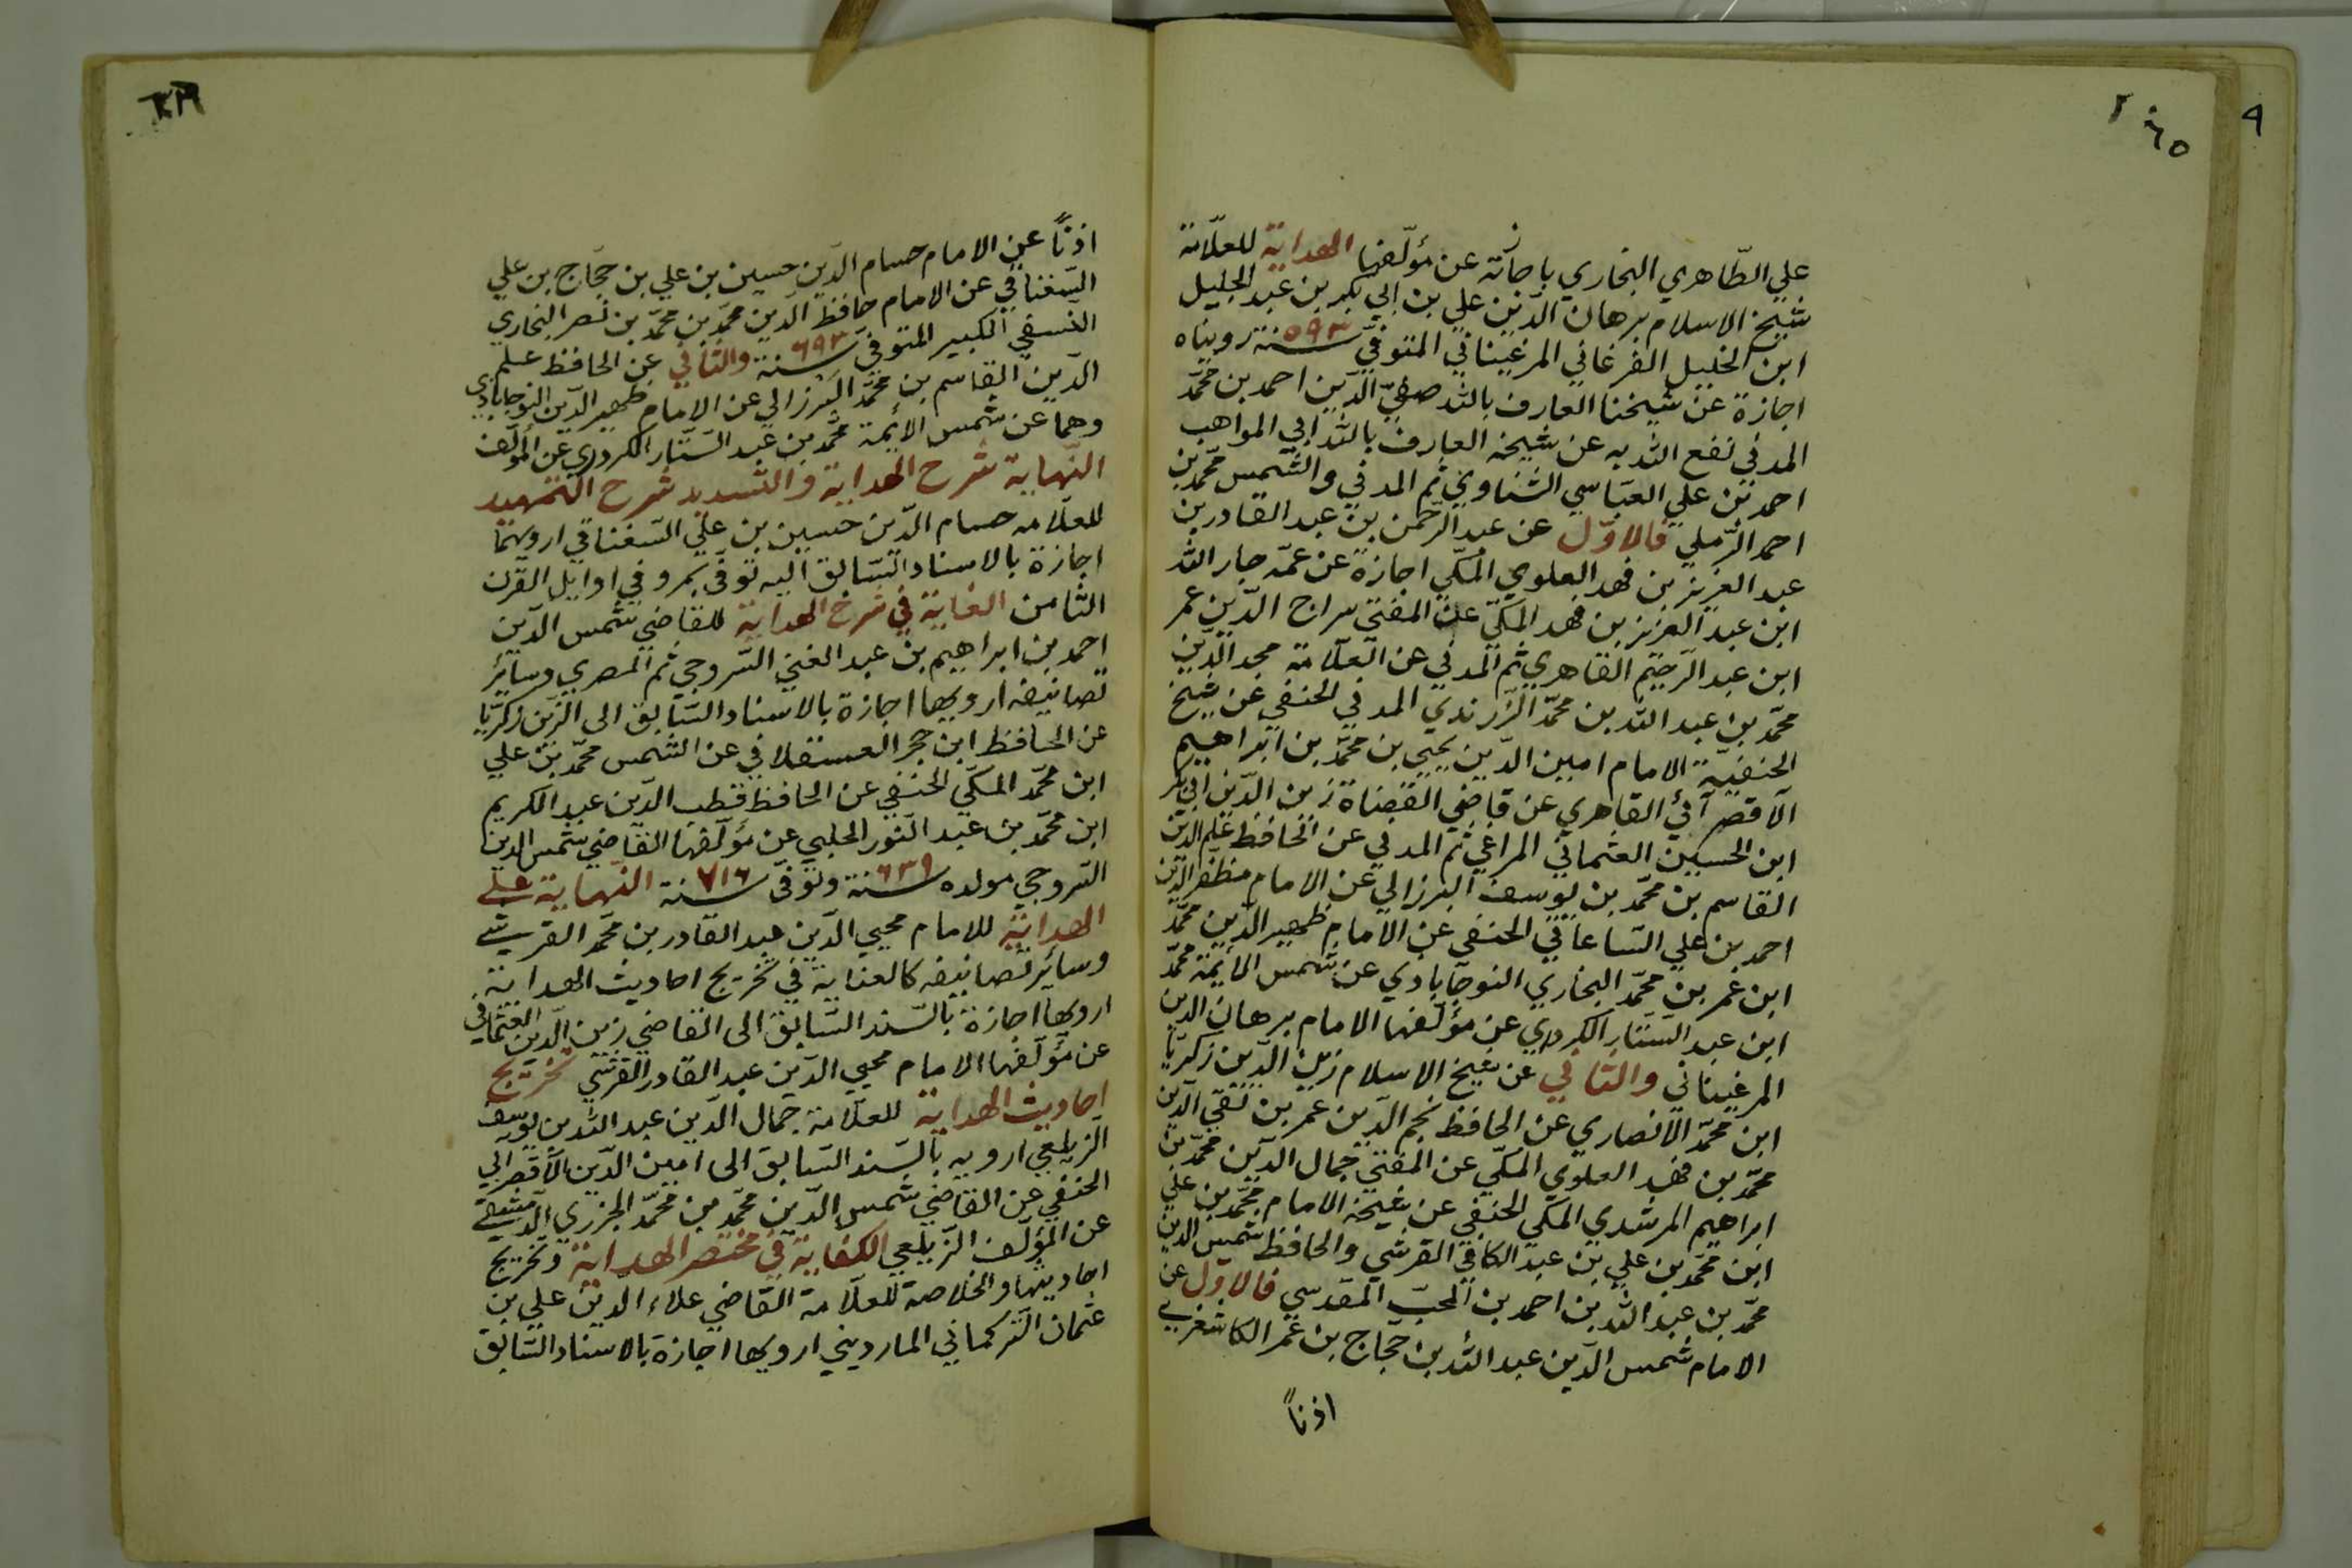 علي الطّاهري البخاري باجازته عن مؤلّفها الهداية للعلّامة
شيخ الاسلام برهان الدّين علي بن ابي بكر بن عبد الجليل
ابن الخليل الفرغاني المرغيناني المتوفّى سنة ٥٩٣ رويناه
اجازة عن شيخنا العارف بالله صفيّ الدّين احمد بن محمّد
المدني نفع الله به عن شيخه العارف بالله ابي المواهب
احمد بن علي العبّاسي الشّنّاوي ثم المدني والشّمس محمّد بن
احمد الرّملي فالاوّل عن عبد الرّحمن بن عبد القادر بن
عبد العزيز بن فهد العلوي المكّي اجازة عن عمّه جار الله
ابن عبد العزيز بن فهد المكّي عن المفتي سراج الدّين عمر
ابن عبد الرّحيم القاهري ثم المدني عن العلّامة مجد الدّين
محمّد بن عبد الله بن محمّد الزّرندي المدني الحنفي عن شيخ
الحنفيّة الامام امين الدّين يحيى بن محمّد بن ابراهيم
الآقصرآئي القاهري عن قاضي القضاة زين الدّين ابي بكر
ابن الحسين العثماني المراغي ثم المدني عن الحافظ علم الدين
القاسم بن محمّد بن يوسف البرزالي عن الامام مظفر الدّين
احمد بن علي السّاعاتي الحنفي عن الامام ظهير الدّين محمّد
ابن عمر بن محمّد البخاري النوجابادي عن شمس الأئمّة محمّد
ابن عبد السّتّار الكردري عن مؤلّفها الامام برهان الدين
المرغيناني والثاني عن شيخ الاسلام زين الدّين زكريّا
ابن محمّد الانصاري عن الحافظ نجم الدّين عمر بن تقي الدّين
محمّد بن فهد العلوي المكّي عن المفتي جمال الدّين محمّد بن
ابراهيم المرشدي المكّي الحنفي عن شيخه الامام محمّد بن علي
ابن محمّد بن علي بن عبد الكافي القرشي والحافظ شمس الدين
محمّد بن عبد الله بن احمد بن المحبّ المقدسي فالاوّل عن
الامام شمس الدّين عبد الله بن حجّاج بن عمر الكاشغري
اذنًا
اذنًا عن الامام حسام الدّين حسين بن علي بن حجّاج بن علي
السّغناقي عن الامام حافظ الدّين محمّد بن محمّد بن نصر البخاري
النّسفي الكبير المتوفّى سنة ٦٩٣ والثاني عن الحافظ علم
الدّين القاسم بن محمّد البرزالي عن الامام ظهير الدّين النوجابادي
وهما عن شمس الأئمّة محمّد بن عبد السّتّار الكردري عن المؤلّف
النّهاية شرح الهداية والتّسديد شرح التّمهيد
للعلّامه حسام الدّين حسين بن علي السّغناقي ارويهما
اجازة بالاسناد السّابق اليه توفّي بمرو في اوايل القرن
الثامن الغاية في شرح الهداية للقاضي شمس الدّين
احمد بن ابراهيم بن عبد الغني السّروجي ثم المصري وسائر
تصانيفه ارويها اجازة بالاسناد السّابق الى الزّين زكريّا
عن الحافظ ابن حجر العسقلاني عن الشمس محمّد بن علي
ابن محمّد المكّي الحنفي عن الحافظ قطب الدّين عبد الكريم
ابن محمّد بن عبد النّور الحلبي عن مؤلّفها القاضي شمس الدين
السّروجي مولده سنة ٦٣٩ وتوفّى سنة ٧١٦ النّهاية على
الهداية للامام محيي الدّين عبد القادر بن محمّد القرشي
وسائر تصانيفه كالعناية في تخريج احاديث الهداية
ارويها اجازة بالسّند السّابق الى القاضي زين الدّين العثماني
عن مؤلّفها الامام محيي الدّين عبد القادر القرشي تخريج
احاديث الهداية للعلّامة جمال الدّين عبد الله بن يوسف
الزيلعي ارويه بالسّند السّابق الى امين الدّين الآقصرائي
الحنفي عن القاضي شمس الدّين محمّد بن محمّد الجزري الدّمشقي
عن المؤلّف الزّيلعي الكفاية في مختصر الهداية وتخريج
احاديثها والخلاصة للعلّامة القاضي علاء الدّين علي بن
عثمان التّركماني المارديني ارويها اجازة بالاسناد السّابق